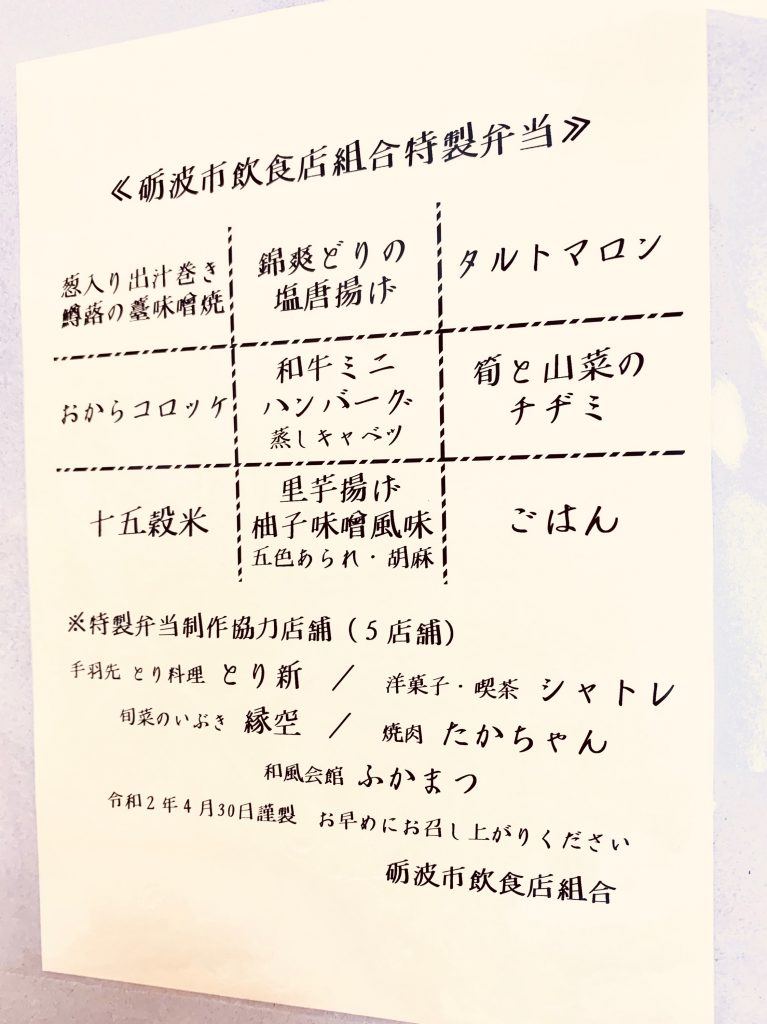 ≪砺波市飲食店組合特製弁当≫
葱入り出汁巻き
鱒蕗の薹味噌焼
錦爽どりの
塩唐揚げ
タルトマロン
おからコロッケ
和牛ミニ
ハンバーグ
蒸しキャベツ
筍と山菜の
チヂミ
十五穀米
里芋揚げ
柚子味噌風味
五色あられ・胡麻
ごはん
※特製弁当制作協力店舗(5店舗)
手羽先 とり料理 とり新 / 洋菓子・喫茶 シャトレ
旬菜のいぶき 縁空 / 焼肉 たかちゃん
和風会館 ふかまつ
令和2年4月30日謹製 お早めにお召し上がりください
砺波市飲食店組合